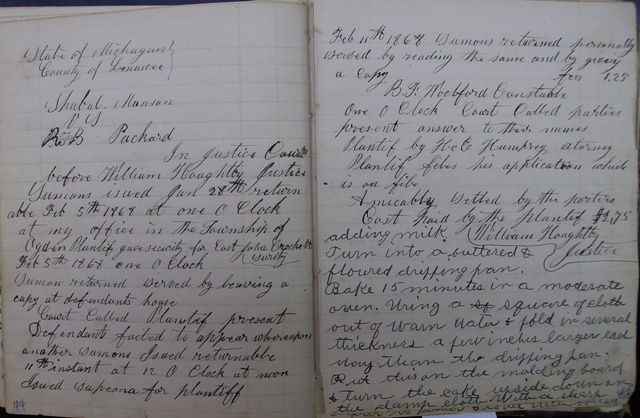 State of Michagan
County of Lenawee
Shubal Manson
vs
R B Packard
In Justice Court
before William Houghtby Justice
Sumons issued Jan 28th return
able Feb 5th 1868 at one O Clock
at my office in the Township of
Ogden Plantif gave security for Cost John Crockett
Feb 5th 1868 one O Clock surity
Sumon returned served by leaving a
copy at defendants house
Court Called Plantif present
Defendant failed to appear whereupon
another sumons Issued returnable
11th instant at 12 O Clock at noon
Issued supcona for plantiff
44
Feb 11th 1868 Sumons returned personaly
served by reading the same and by giveing
a Copy fees 1.25
B. F. Wolford Constable
One O Clock Court Called parties
present answer to their names
Plantif by H &E Humprey attorney
Plantif files his application which
is on file
Amicably setled by the parties
Cost paid by the plantif $1,75
adding milk. William Houghtby
Turn into a buttered & Justice
floured dripping pan.
Bake 15 minutes in a moderate
oven. Wring a squeare of cloth
out of warm water & fold in several
thickness a few inches larger each
way than the dripping pan.
Put this on the molding board
& turn the cake upside down on
the damp cloth with a sharp